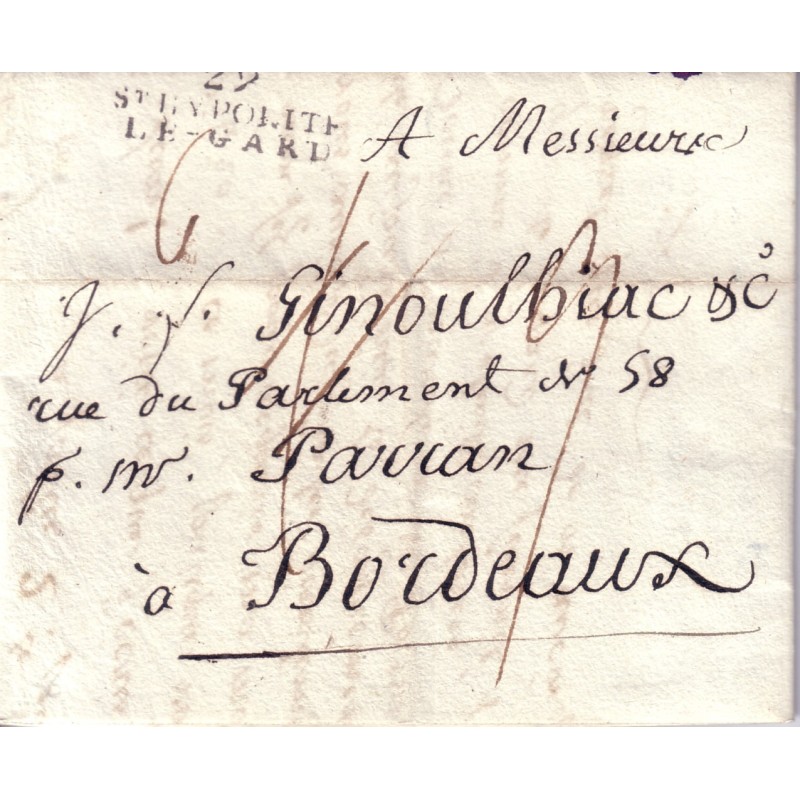 29
ST HYPOLITE
LE-GARD
A Messieurs
J. f. Ginoulhiac & Cº
rue du Parlement Nº 58
p. m. Parran
à Bordeaux